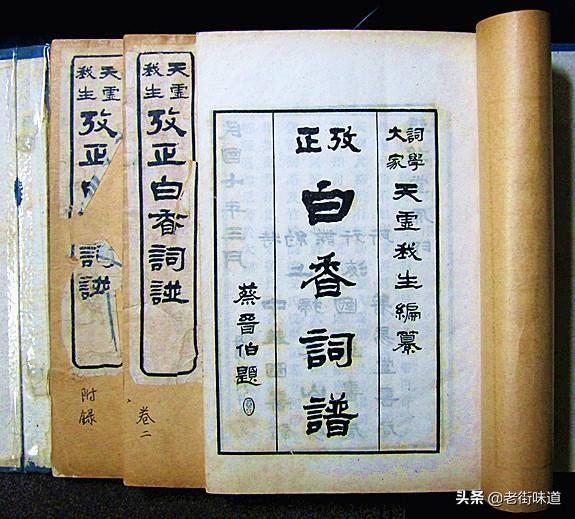 詞學大家天虛我生編纂
攷正
白香詞譜
蔡晉伯題
天虛我生
攷正白香詞譜
卷二
天虛我生
攷正
詞譜
附錄
头条 @老街味道